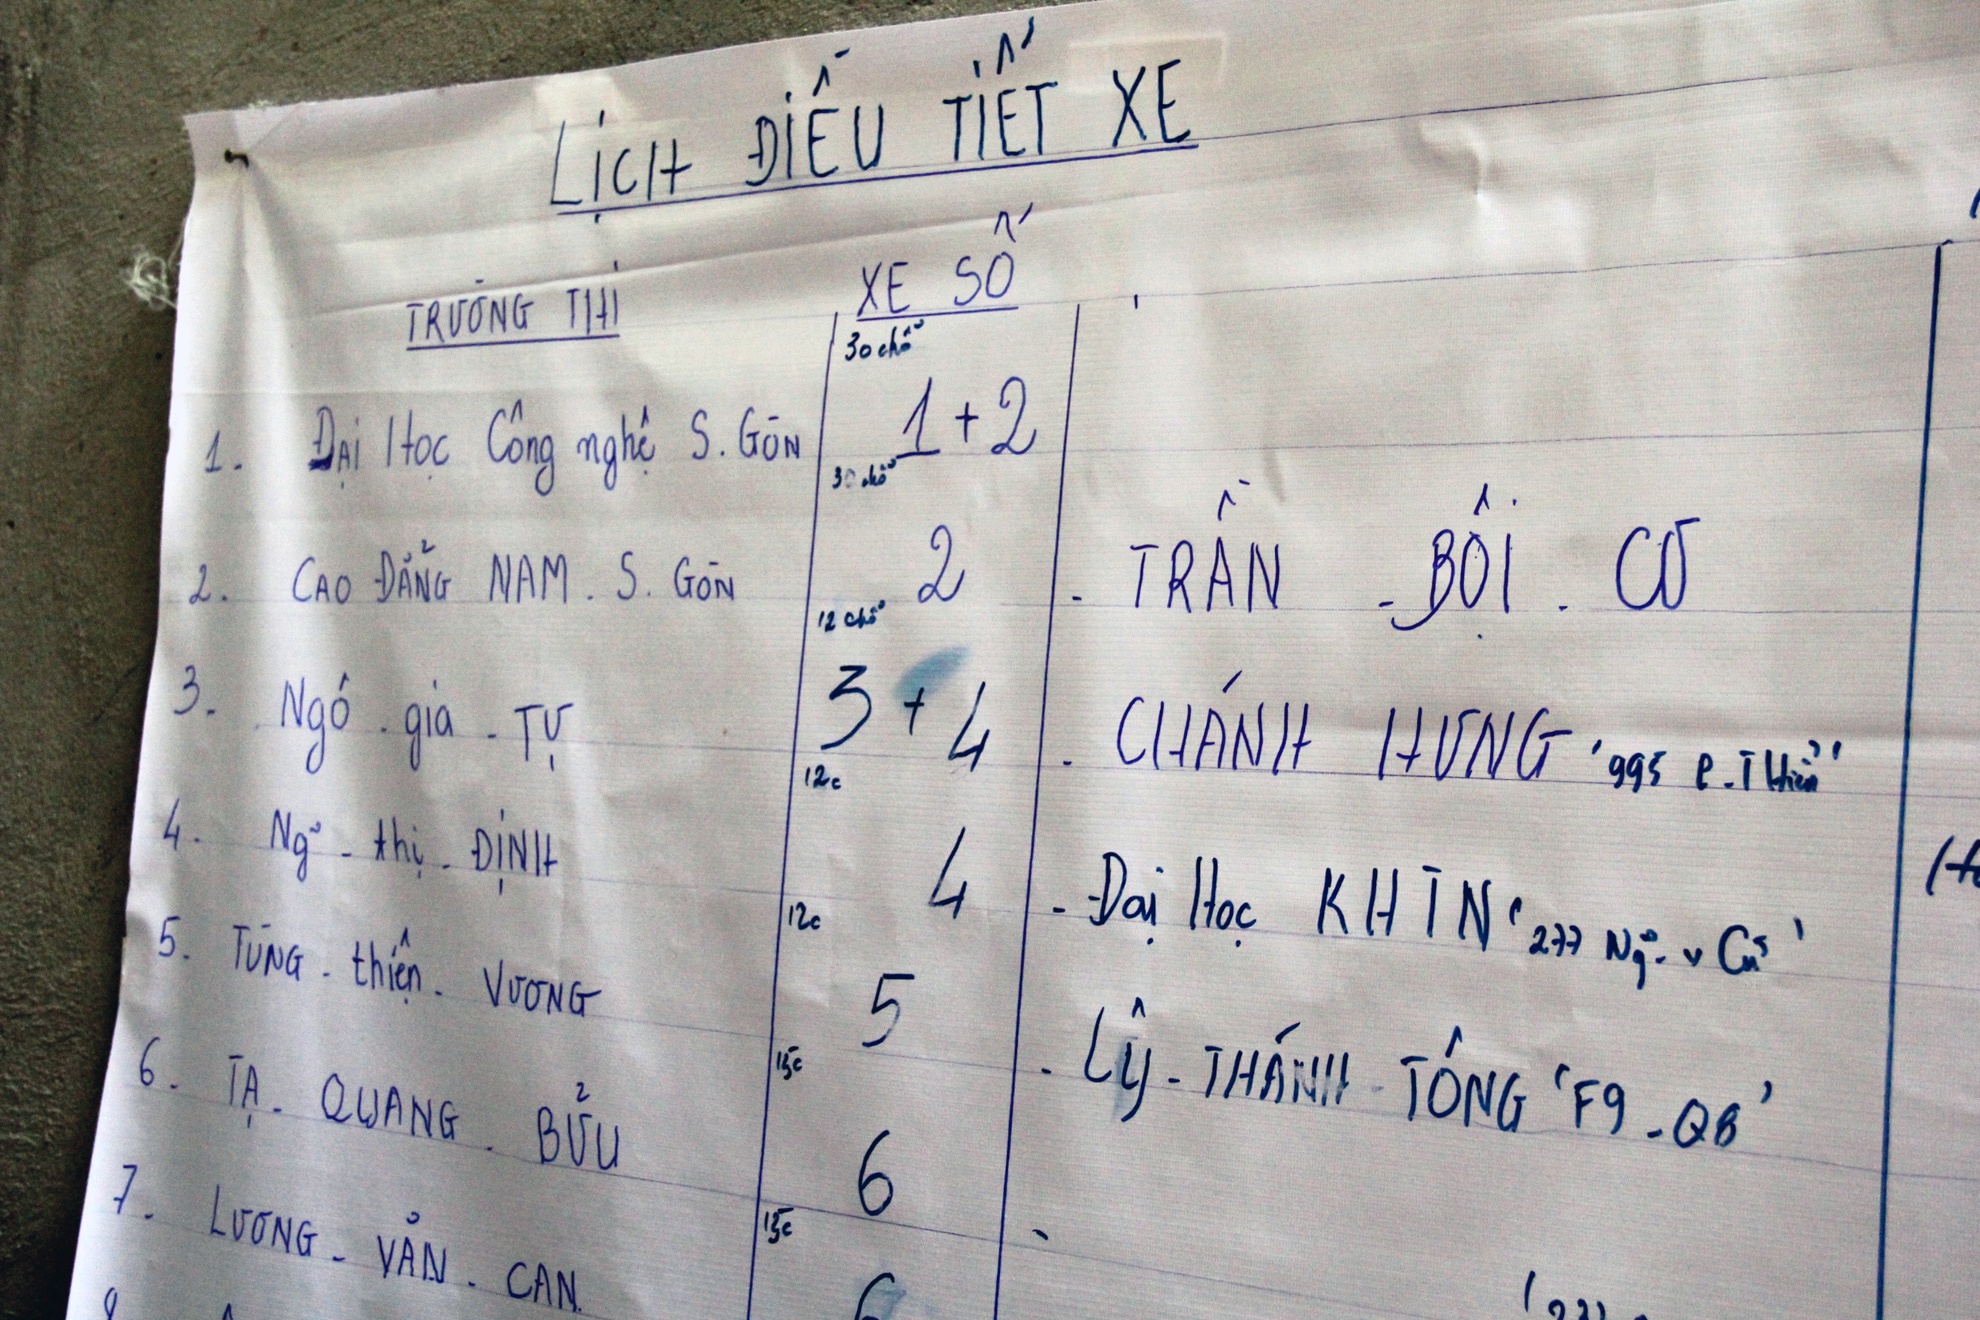 LỊCH ĐIỀU TIẾT XE
TRƯỜNG THI
XE SỐ
30 chỗ
1. Đại Học Công nghệ S. Gòn 1 + 2
30 chỗ
2. CAO ĐẲNG NAM. S. Gòn 2 - TRẦN - BỘI. CƠ
12 chỗ
3. Ngô - gia - TỰ 3 + 4 - CHÁNH HƯNG '995 P. Thiền'
12c
4. Ng~ - thị - ĐỊNH 4 - Đại Học KHTN '277 Ng~ - v Cừ'
12c
5. TÙNG - thiện - VƯƠNG 5 - LÝ - THÁNH TÔNG 'F9 - Q8'
15c
6. TẠ - QUANG - BỬU 6
15c
7. LƯƠNG - VĂN - CAN 6